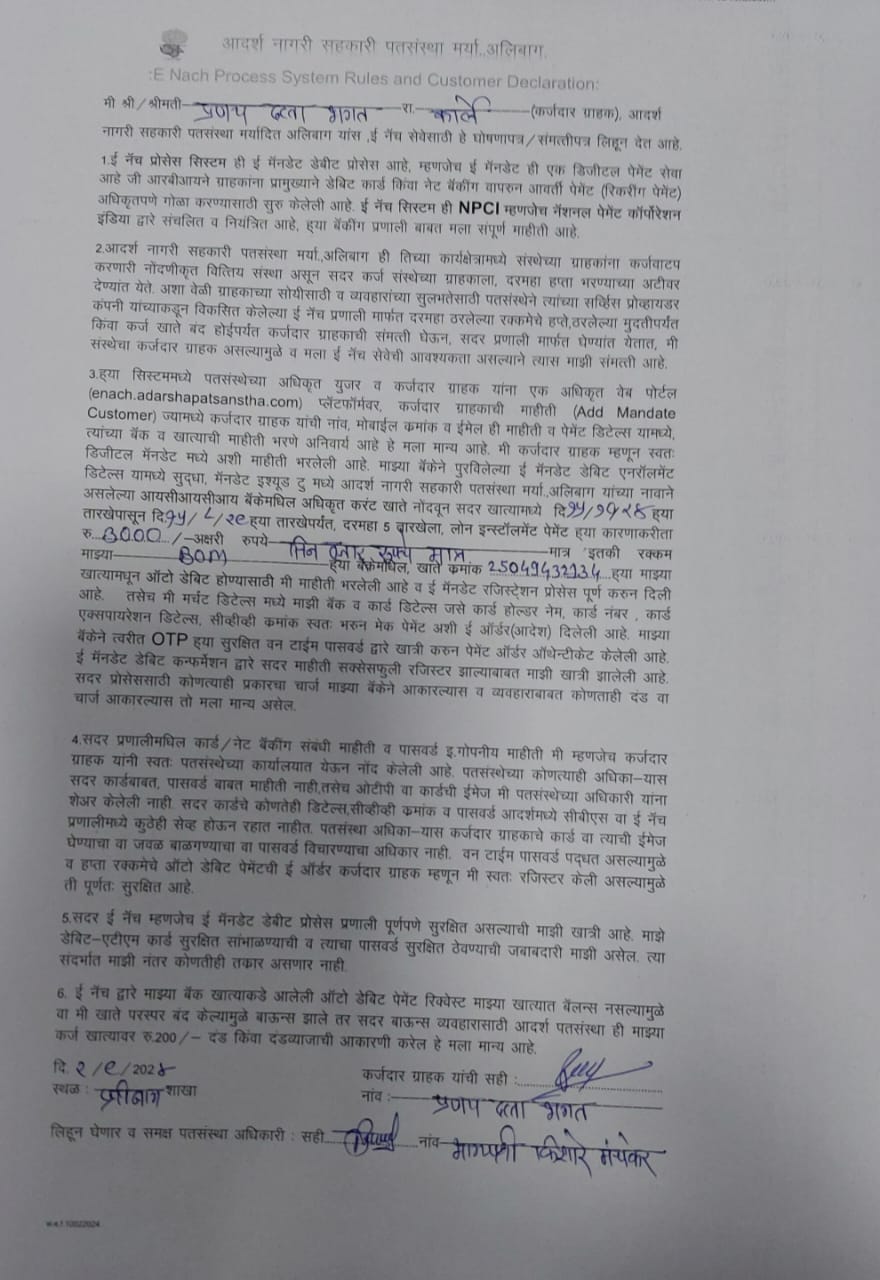 आदर्श नागरी सहकारी पतसंस्था मर्या.,अलिबाग.
:E Nach Process System Rules and Customer Declaration:
मी श्री/श्रीमती प्रणय दत्ता भगत रा. कार्ले (कर्जदार ग्राहक), आदर्श
नागरी सहकारी पतसंस्था मर्यादित अलिबाग यांस ,ई नॅच सेवेसाठी हे घोषणापत्र/संमत्तीपत्र लिहून देत आहे.
1.ई नॅच प्रोसेस सिस्टम ही ई मॅनडेट डेबीट प्रोसेस आहे, म्हणजेच ई मॅनडेट ही एक डिजिटल पेमेंट सेवा
आहे जी आरबीआयने ग्राहकांना प्रामुख्याने डेबिट कार्ड किंवा नेट बॅकींग वापरुन आवर्ती पेमेंट (रिकरींग पेमेंट)
अधिकृतपणे गोळा करण्यासाठी सुरु केलेली आहे. ई नॅच सिस्टम ही NPCI म्हणजेच नॅशनल पेमेंट कॉर्पोरेशन
इंडिया द्वारे संचलित व नियंत्रित आहे, ह्या बॅकींग प्रणाली बाबत मला संपूर्ण माहीती आहे.
2.आदर्श नागरी सहकारी पतसंस्था मर्या.,अलिबाग ही तिच्या कार्यक्षेत्रामध्ये संस्थेच्या ग्राहकांना कर्जवाटप
करणारी नोंदणीकृत वित्तिय संस्था असून सदर कर्ज संस्थेच्या ग्राहकाला, दरमहा हप्ता भरण्याच्या अटीवर
देण्यांत येते. अशा वेळी ग्राहकाच्या सोयीसाठी व व्यवहारांच्या सुलभतेसाठी पतसंस्थेने त्यांच्या सर्व्हिस प्रोव्हायडर
कंपनी यांच्याकडून विकसित केलेल्या ई नॅच प्रणाली मार्फत दरमहा ठरलेल्या रक्कमेचे हप्ते,ठरलेल्या मुदतीपर्यंत
किंवा कर्ज खाते बंद होईपर्यंत कर्जदार ग्राहकाची संमत्ती घेऊन, सदर प्रणाली मार्फत घेण्यांत येतात, मी
संस्थेचा कर्जदार ग्राहक असल्यामुळे व मला ई नॅच सेवेची आवश्यकता असल्याने त्यास माझी संमत्ती आहे.
3.ह्या सिस्टममध्ये पतसंस्थेच्या अधिकृत युजर व कर्जदार ग्राहक यांना एक अधिकृत वेब पोर्टल
(enach.adarshapatsanstha.com) प्लॅटफॉर्मवर, कर्जदार ग्राहकाची माहीती (Add Mandate
Customer) ज्यामध्ये कर्जदार ग्राहक यांची नांव, मोबाईल क्रमांक व ईमेल ही माहीती व पेमेंट डिटेल्स यामध्ये,
त्यांच्या बॅक व खात्याची माहीती भरणे अनिवार्य आहे हे मला मान्य आहे. मी कर्जदार ग्राहक म्हणून स्वतः
डिजीटल मॅनडेट मध्ये अशी माहीती भरलेली आहे. माझ्या बॅकेने पुरविलेल्या ई मॅनडेट डेबिट एनरॉलमेंट
डिटेल्स यामध्ये सुद्धा, मॅनडेट इश्यूड टु मध्ये आदर्श नागरी सहकारी पतसंस्था मर्या.,अलिबाग यांच्या नावाने
असलेल्या आयसीआयसीआय बॅकेमधिल अधिकृत करंट खाते नोंदवून सदर खात्यामध्ये दि. ह्या
तारखेपासून दि. ह्या तारखेपर्यंत, दरमहा 5 तारखेला, लोन इन्स्टॉलमेंट पेमेंट ह्या कारणाकरीता
रु. 3000 /-अक्षरी रुपये तिन हजार रूपये मात्र मात्र इतकी रक्कम
माझ्या BOM ह्या बॅकेमधिल, खाते क्रमांक ह्या माझ्या
खात्यामधून ऑटो डेबिट होण्यासाठी मी माहीती भरलेली आहे व ई मॅनडेट रजिस्ट्रेशन प्रोसेस पूर्ण करुन दिली
आहे. तसेच मी मर्चंट डिटेल्स मध्ये माझी बॅक व कार्ड डिटेल्स जसे कार्ड होल्डर नेम, कार्ड नंबर , कार्ड
एक्सपायरेशन डिटेल्स, सीव्हीव्ही क्रमांक स्वतः भरुन मेक पेमेंट अशी ई ऑर्डर(आदेश) दिलेली आहे. माझ्या
बॅकेने त्वरीत OTP ह्या सुरक्षित वन टाईम पासवर्ड द्वारे खात्री करुन पेमेंट ऑर्डर ऑथेन्टीकेट केलेली आहे.
ई मॅनडेट डेबिट कन्फर्मेशन द्वारे सदर माहीती सक्सेसफुली रजिस्टर झाल्याबाबत माझी खात्री झालेली आहे.
सदर प्रोसेससाठी कोणत्याही प्रकारचा चार्ज माझ्या बॅकेने आकारल्यास व व्यवहाराबाबत कोणताही दंड वा
चार्ज आकारल्यास तो मला मान्य असेल.
4.सदर प्रणालीमधिल कार्ड/नेट बॅकींग संबंधी माहीती व पासवर्ड इ.गोपनीय माहीती मी म्हणजेच कर्जदार
ग्राहक यांनी स्वतः पतसंस्थेच्या कार्यालयात येऊन नोंद केलेली आहे. पतसंस्थेच्या कोणत्याही अधिका-यास
सदर कार्डबाबत, पासवर्ड बाबत माहीती नाही,तसेच ओटीपी वा कार्डची ईमेज मी पतसंस्थेच्या अधिकारी यांना
शेअर केलेली नाही. सदर कार्डचे कोणतेही डिटेल्स,सीव्हीव्ही क्रमांक व पासवर्ड आदर्शमध्ये सीबीएस वा ई नॅच
प्रणालीमध्ये कुठेही सेव्ह होऊन रहात नाहीत. पतसंस्था अधिका-यास कर्जदार ग्राहकाचे कार्ड वा त्याची ईमेज
घेण्याचा वा जवळ बाळगण्याचा वा पासवर्ड विचारण्याचा अधिकार नाही. वन टाईम पासवर्ड पद्धत असल्यामुळे
व हप्ता रक्कमेचे ऑटो डेबिट पेमेंटची ई ऑर्डर कर्जदार ग्राहक म्हणून मी स्वतः रजिस्टर केली असल्यामुळे
ती पूर्णतः सुरक्षित आहे.
5.सदर ई नॅच म्हणजेच ई मॅनडेट डेबीट प्रोसेस प्रणाली पूर्णपणे सुरक्षित असल्याची माझी खात्री आहे. माझे
डेबिट-एटीएम कार्ड सुरक्षित सांभाळण्याची व त्याचा पासवर्ड सुरक्षित ठेवण्याची जबाबदारी माझी असेल. त्या
संदर्भात माझी नंतर कोणतीही तकार असणार नाही.
6. ई नॅच द्वारे माझ्या बॅक खात्याकडे आलेली ऑटो डेबिट पेमेंट रिक्वेस्ट माझ्या खात्यात बॅलन्स नसल्यामुळे
वा मी खाते परस्पर बंद केल्यामुळे बाऊन्स झाले तर सदर बाऊन्स व्यवहारासाठी आदर्श पतसंस्था ही माझ्या
कर्ज खात्यावर रु.200/- दंड किंवा दंडव्याजाची आकारणी करेल हे मला मान्य आहे.
दि. २/९/2024 कर्जदार ग्राहक यांची सही :
स्थळ : शाखा नांव : प्रणय दत्ता भगत
लिहून घेणार व समक्ष पतसंस्था अधिकारी : सही नांव भाग्यश्री किशोर
w.e.f.10022024